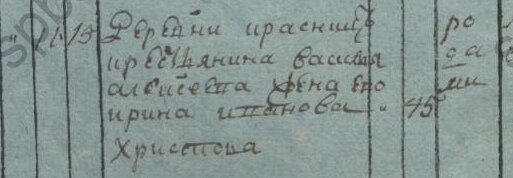 21 15 Деревни красниц
крестьянина василья ро
алексеева жена его да
ирина иванова 45 ми
Христова